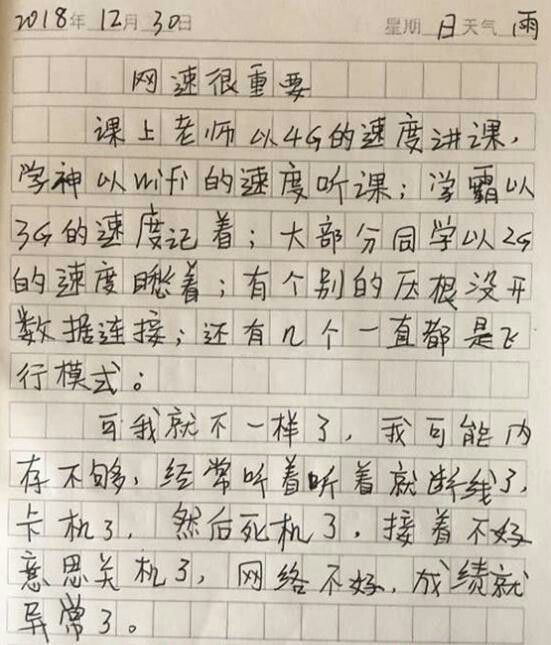 2018年 12月 30日 星期 日 天气 雨
网速很重要
课上老师以4G的速度讲课，
学神以wifi的速度听课；学霸以
3G的速度记着；大部分同学以2G
的速度瞅着；有个别的压根没开
数据连接；还有几个一直都是飞
行模式。
可我就不一样了，我可能内
存不够，经常听着听着就断线了，
卡机了，然后死机了，接着不好
意思关机了，网络不好，成绩就
异常了。